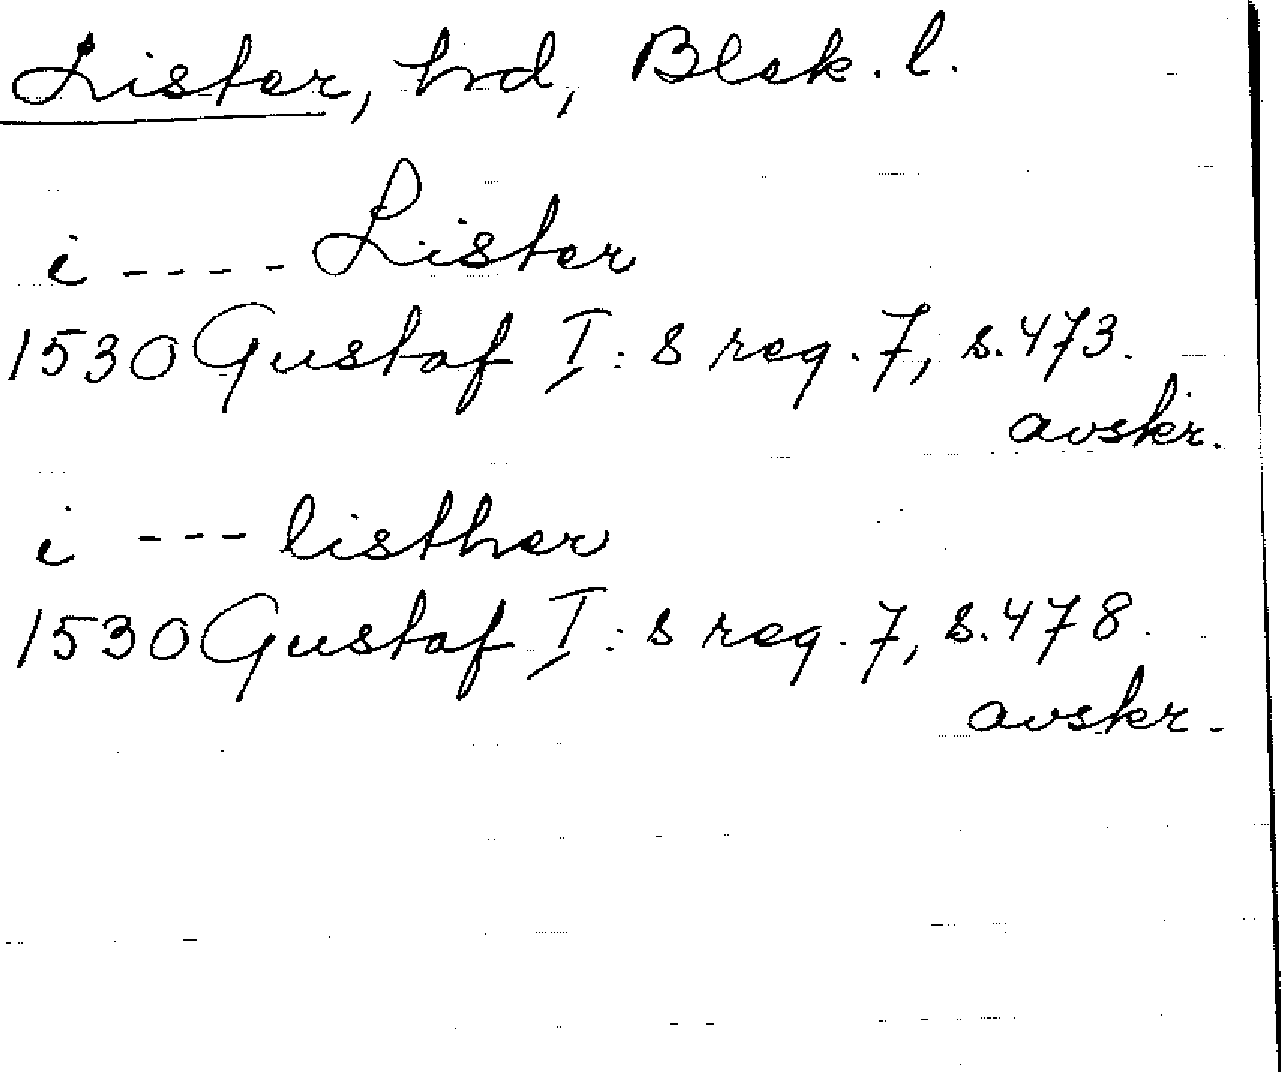 Lister, hrd, Blek. l.
i ---- Lister
1530 Gustaf I: s reg. 7, s. 473.
avskr.
i --- listher
1530 Gustaf I: s reg. 7, s. 478.
avskr.